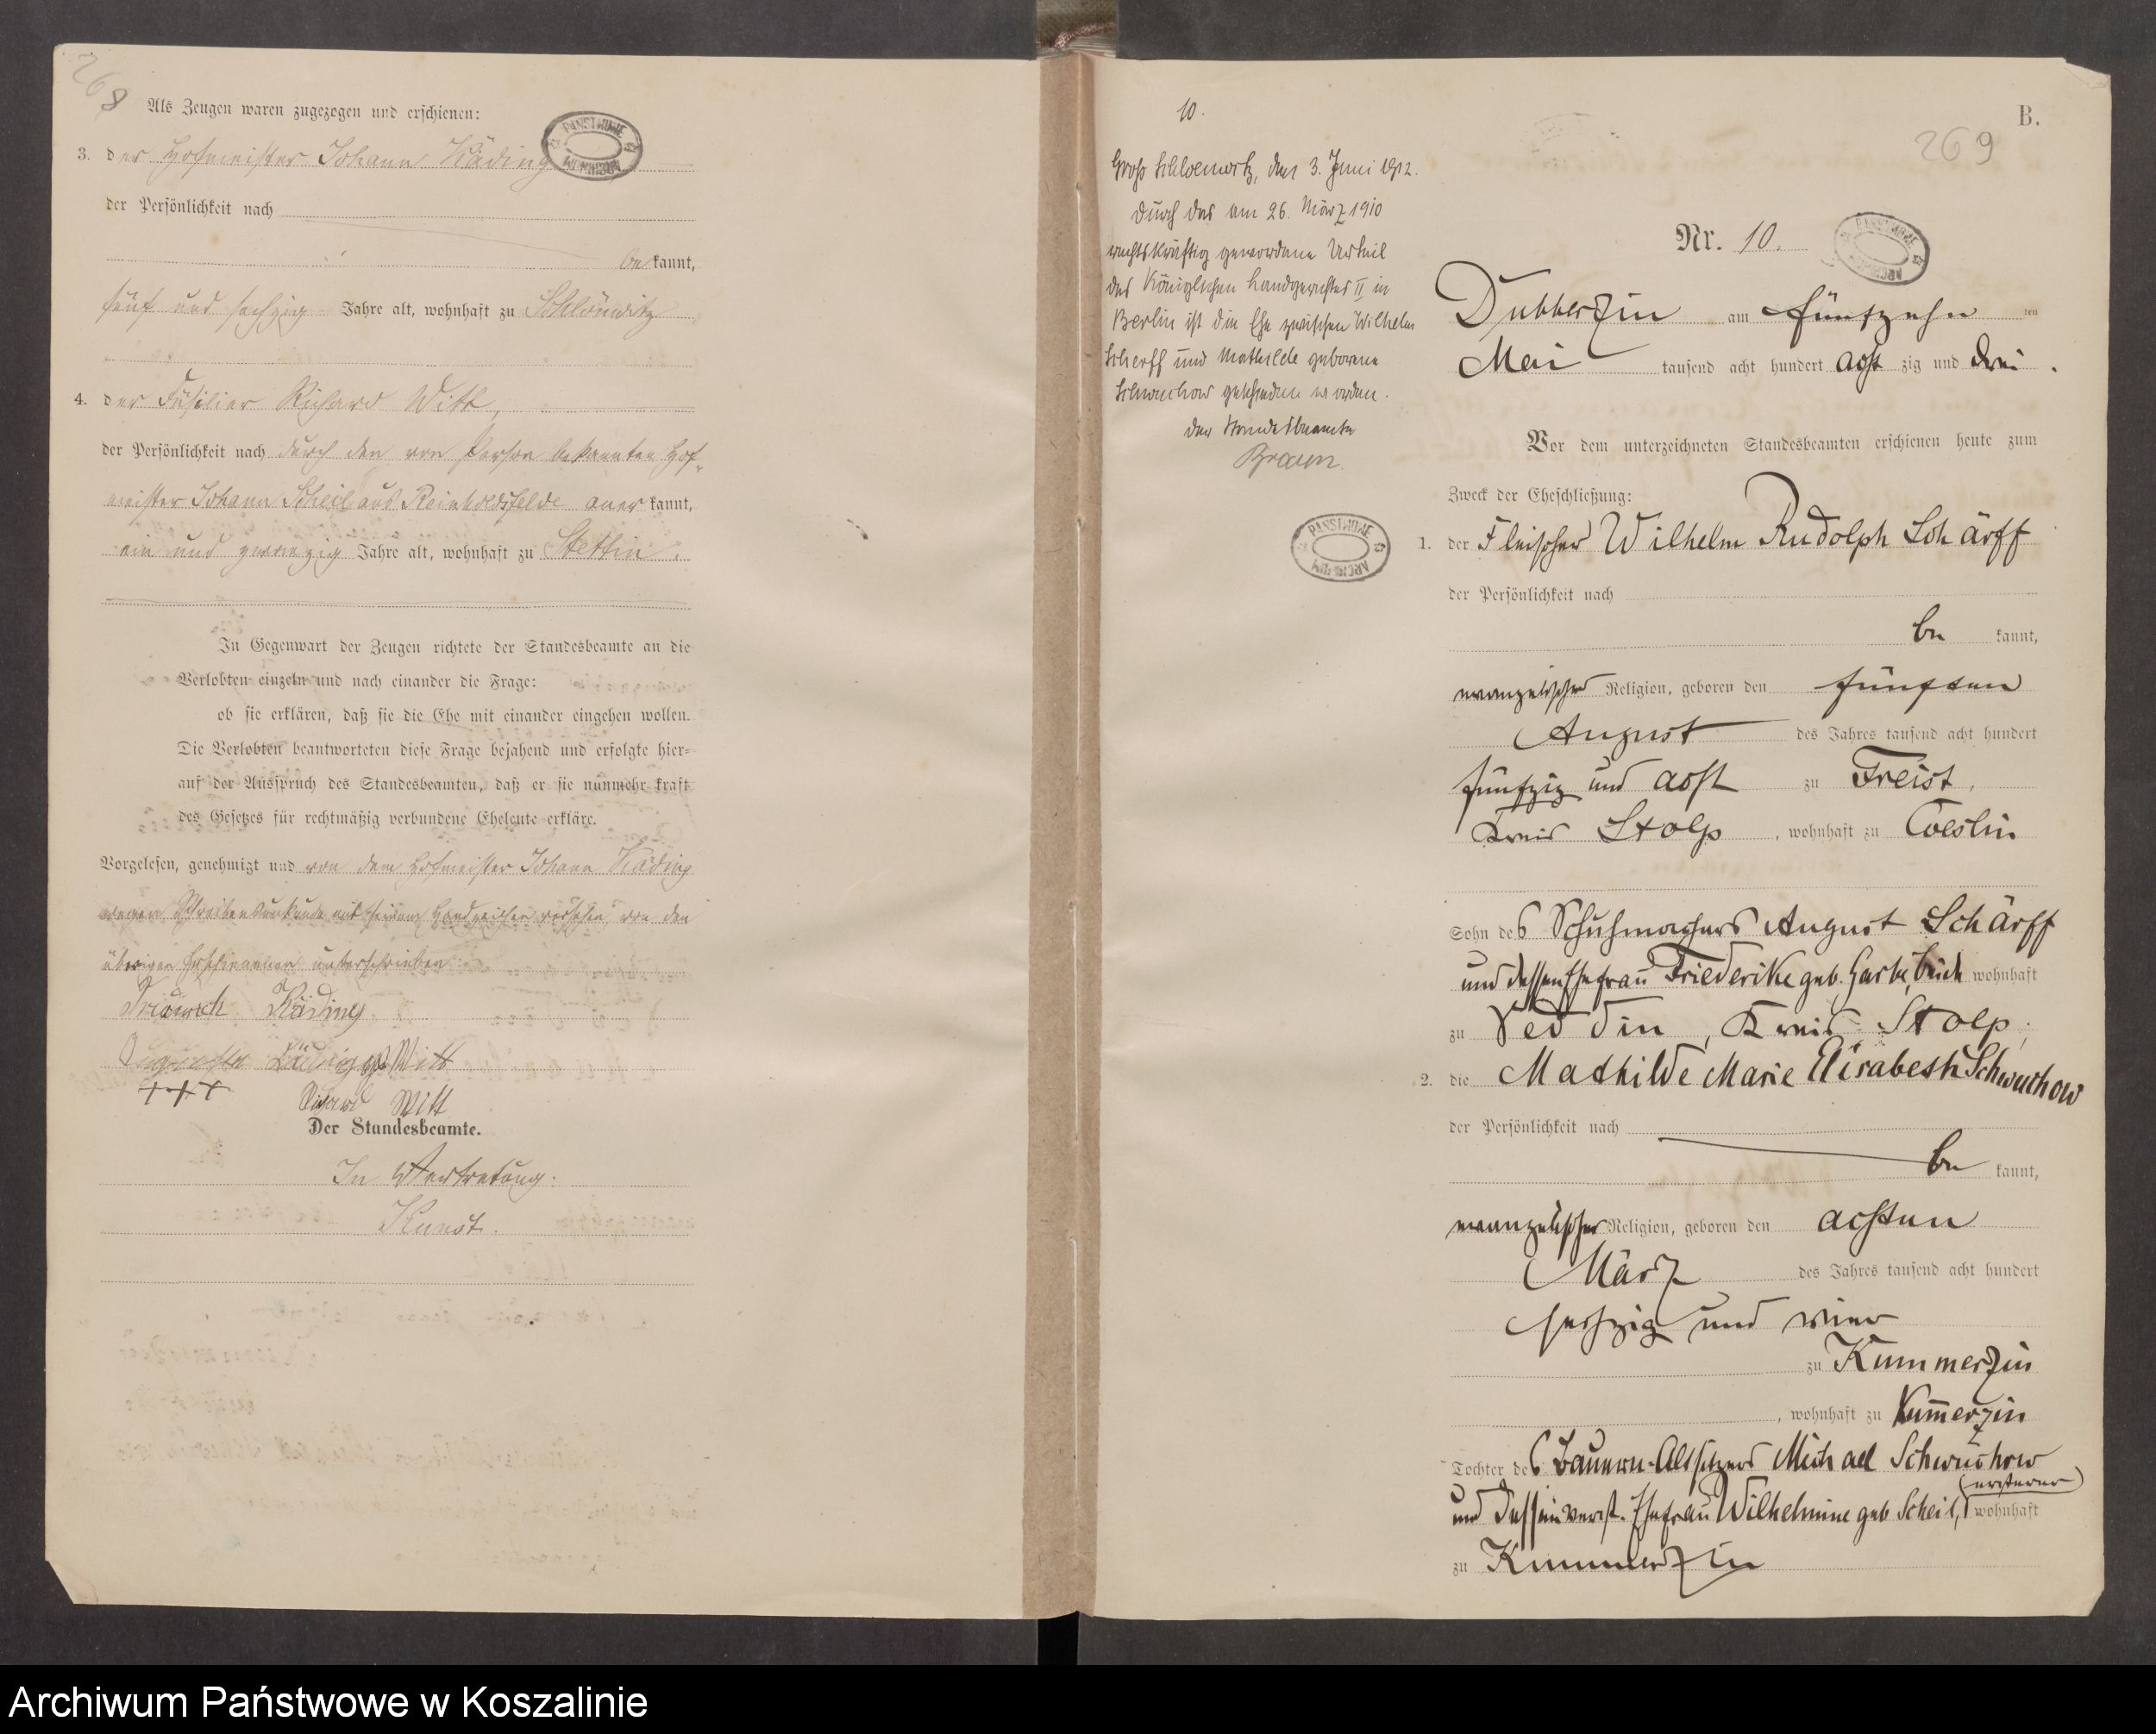 268
Als Zeugen waren zugezogen und erschienen:
3. der Hofmeister Johann Käding
PANSTWOWE ARCHIWUM
der Persönlichkeit nach
be kannt,
fünf und sechzig Jahre alt, wohnhaft zu Schlönwitz
4. der Füsilier Richard Witt,
der Persönlichkeit nach durch den von Person bekannten Hof-
meister Johann Scheil aus Reinholdsfelde aner kannt,
ein und zwanzig Jahre alt, wohnhaft zu Stettin.
In Gegenwart der Zeugen richtete der Standesbeamte an die
Verlobten einzeln und nach einander die Frage:
ob sie erklären, daß sie die Ehe mit einander eingehen wollen.
Die Verlobten beantworteten diese Frage bejahend und erfolgte hier-
auf der Ausspruch des Standesbeamten, daß er sie nunmehr kraft
des Gesetzes für rechtmäßig verbundene Eheleute erkläre.
Vorgelesen, genehmigt und von dem Hofmeister Johann Käding
wegen Schreibensunkunde mit seinem Handzeichen versehen, von den
übrigen Erschienenen unterschrieben
Friedrich Käding
Käding geb Witt
+++
Richard Witt
Der Standesbeamte.
In Vertretung:
Kunst.
10.
Groß Schloenwitz, den 3. Juni 1912.
Durch das am 26. März 1910
rechtskräftig gewordene Urteil
des Königlichen Landgerichtes II in
Berlin ist die Ehe zwischen Wilhelm
Scherff und Mathilde geborene
Schwuchow geschieden worden.
Der Standesbeamte
Braun
PANSTWOWE ARCHIWUM
B.
269
Nr. 10.
PANSTWOWE ARCHIWUM
Dubberzin am fünfzehn ten
Mai tausend acht hundert acht zig und drei.
Vor dem unterzeichneten Standesbeamten erschienen heute zum
Zweck der Eheschließung:
1. der Fleischer Wilhelm Rudolph Schärff
der Persönlichkeit nach
be kannt,
evangelischer Religion, geboren den fünften
August des Jahres tausend acht hundert
fünfzig und acht zu Freist,
Kreis Stolp, wohnhaft zu Coeslin
Sohn des Schuhmachers August Schärff
und dessen Ehefrau Friederike geb. beide wohnhaft
zu Veddin, Kreis Stolp;
2. die Mathilde Marie Elisabeth Schwuchow
der Persönlichkeit nach
be kannt,
evangelischer Religion, geboren den achten
März des Jahres tausend acht hundert
sechzig und vier
zu Kummerzin
, wohnhaft zu Kum̄erzin
Tochter des Bauern-Altsitzers Michael Schwuchow
(ersterer)
und dessen verst. Ehefrau Wilhelmine geb Scheil, wohnhaft
zu Kummerzin
Archiwum Państwowe w Koszalinie